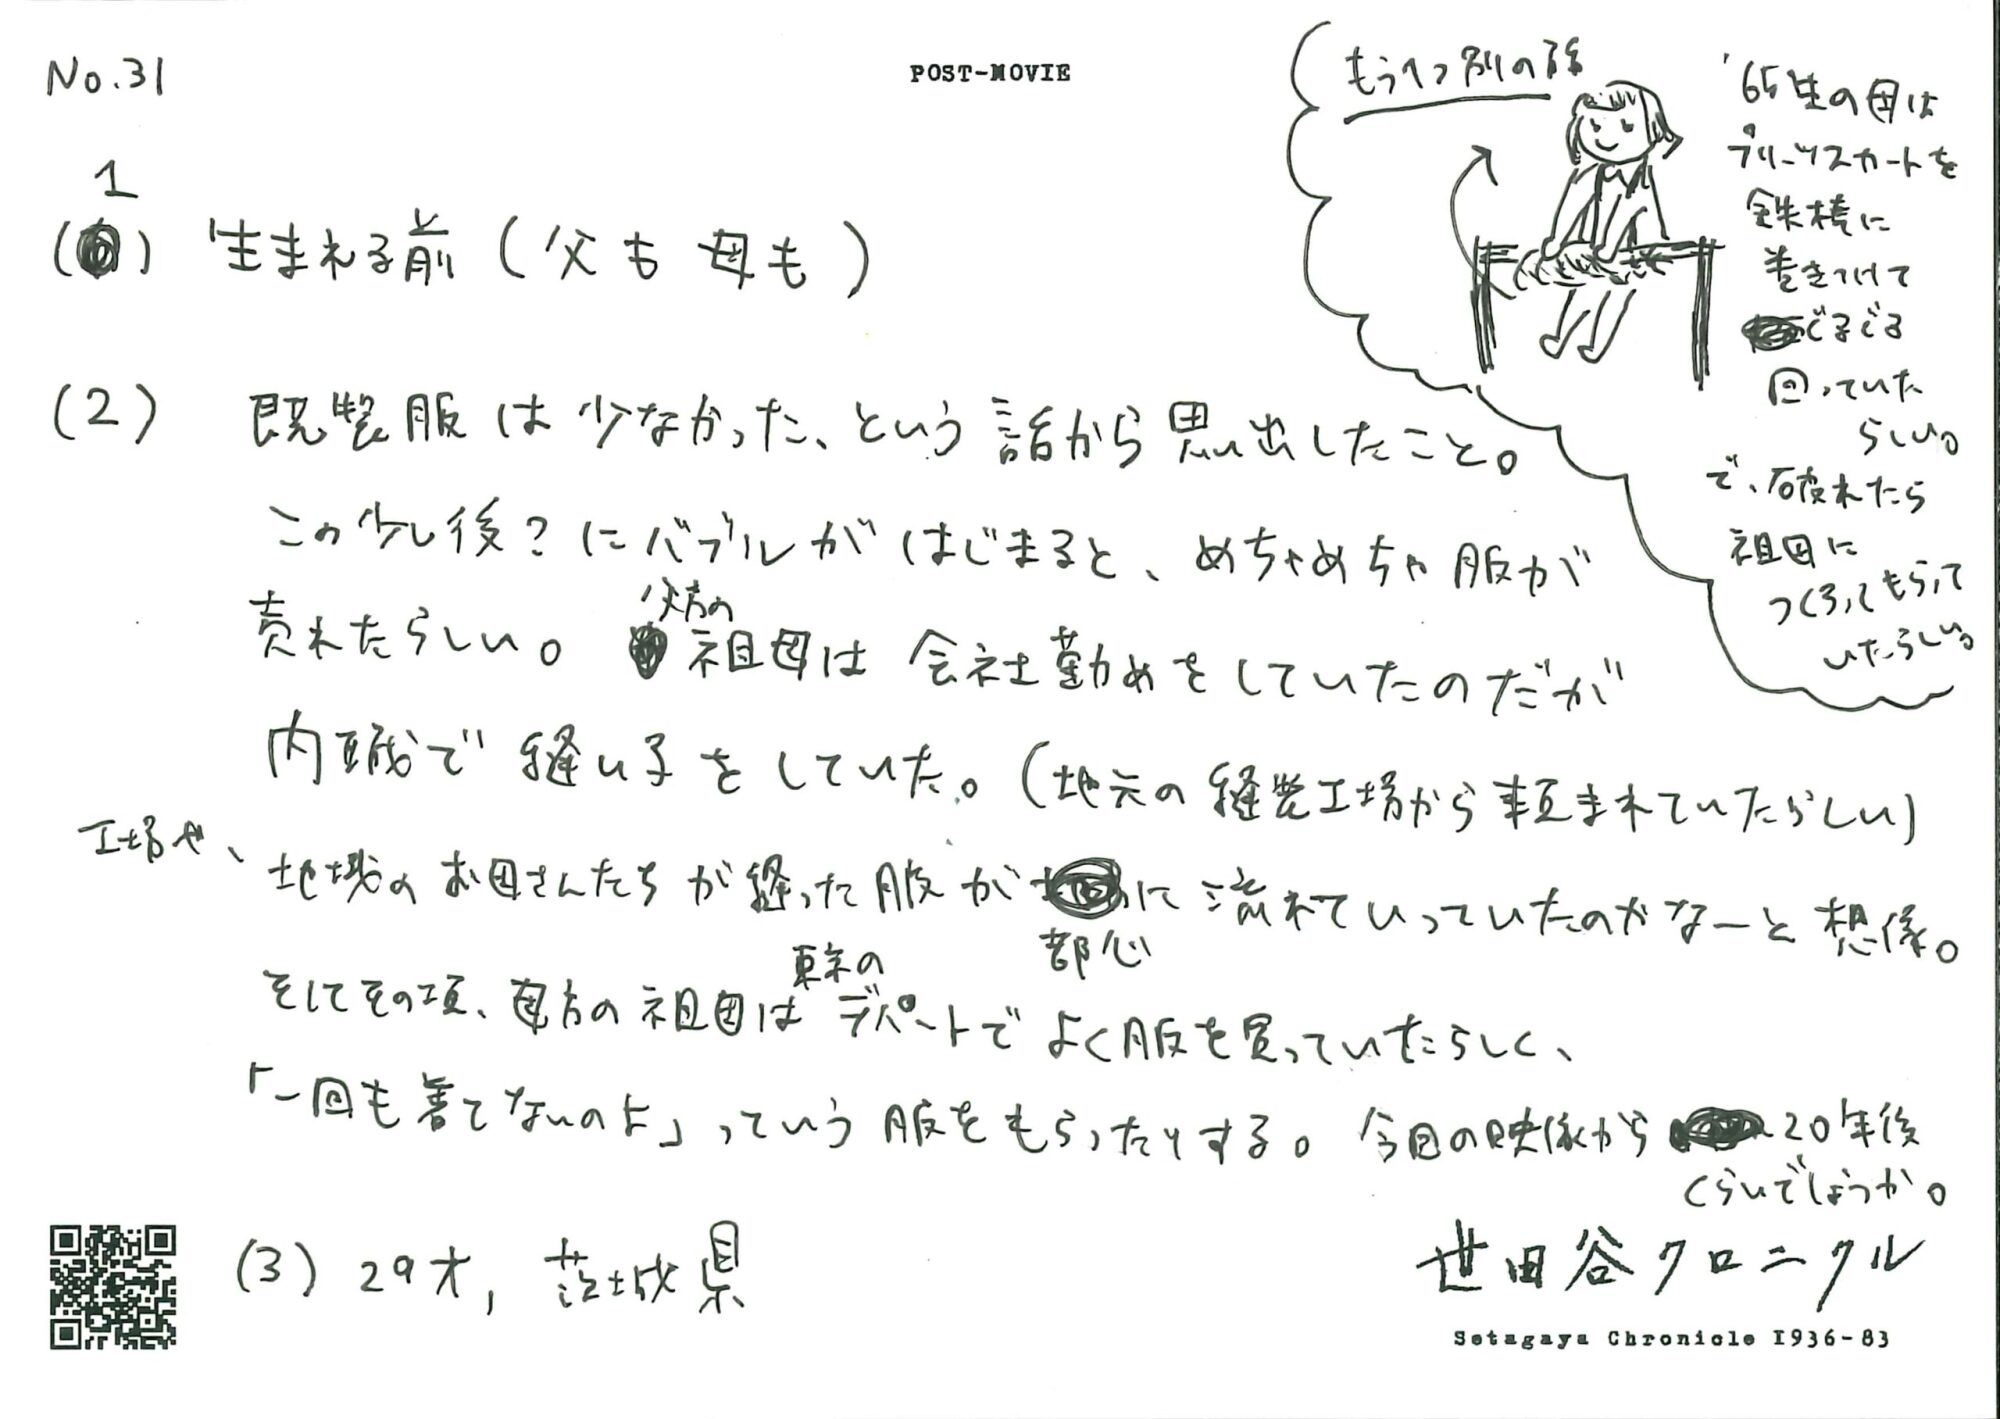 No.31
POST-MOVIE
(1) 生まれる前（父も母も）
(2) 既製服は少なかった、という話から思い出したこと。
この少し後？にバブルがはじまると、めちゃめちゃ服が
売れたらしい。父方の祖母は会社勤めをしていたのだが
内職で縫い子をしていた。（地元の縫製工場から頼まれていたらしい）
工場や、地域のお母さんたちが縫った服が都心に流れていっていたのかなーと想像。
そしてその頃、母方の祖母は東京のデパートでよく服を買っていたらしく、
「一回も着てないのよ」っていう服をもらったりする。今回の映像から20年後
くらいでしょうか。
もう1つ別の話
'65生の母は
プリーツスカートを
鉄棒に
巻きつけて
ぐるぐる
回っていた
らしい。
で、破れたら
祖母に
つくろってもらって
いたらしい。
(3) 29才, 茨城県
世田谷クロニクル
Setagaya Chronicle 1936-83